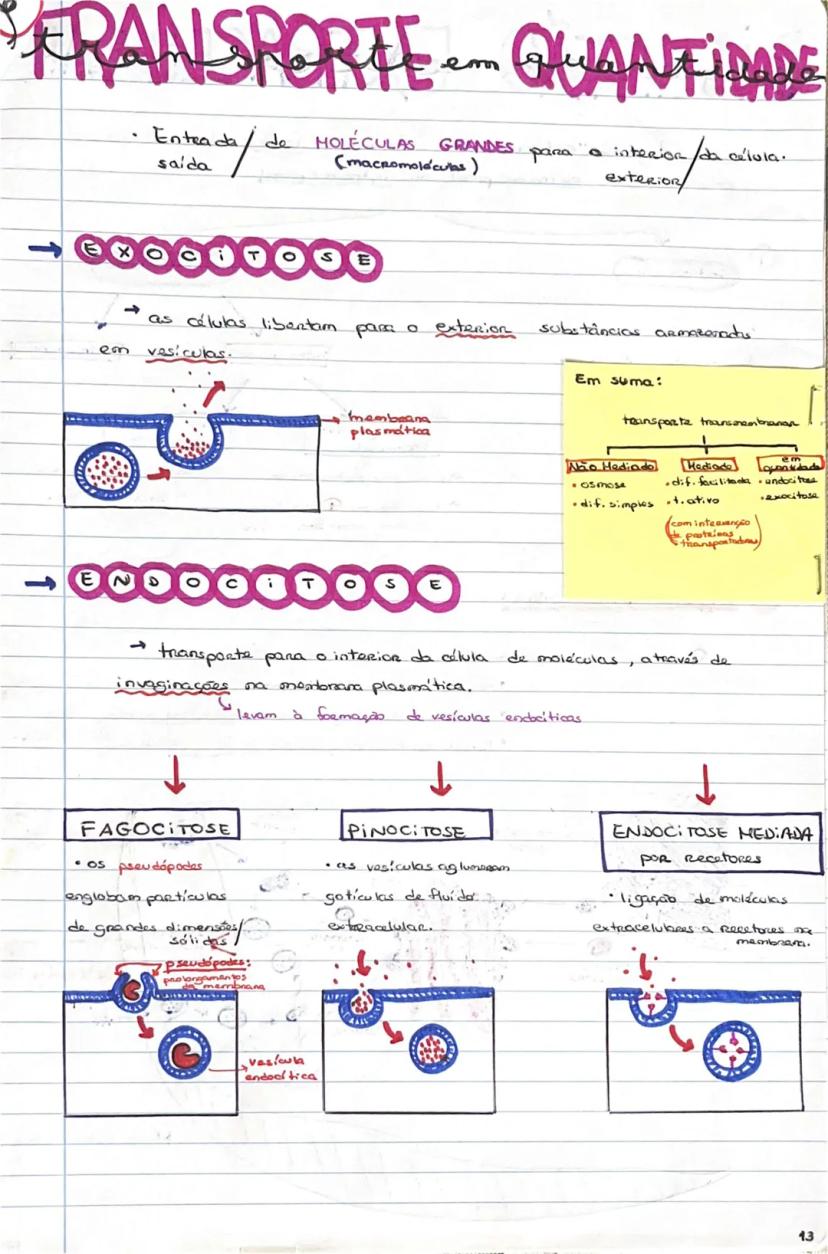 TRANSPORTE em QUANTIDADE
transporte em quantidade
• Entrada/ de MOLÉCULAS GRANDES para o interior/da célula.
saída (macromoléculas) exterior/
→ EXOCITOSE
→ as células libertam para o exterior substâncias armazenadas
em vesículas.
membrana
plasmática
Em suma:
transporte transmembranar
Não Mediado
• osmose
• dif. simples
Mediado
• dif. facilitada
• t. ativo
(com intervenção
de proteínas
transportadoras)
em
quantidade
• endocitose
• exocitose
→ ENDOCITOSE
→ transporte para o interior da célula de moléculas, através de
invaginações na membrana plasmática.
levam à formação de vesículas endocíticas
FAGOCITOSE
• os pseudópodes
englobam partículas
de grandes dimensões/
sólidas
pseudópodes:
prolongamentos
da membrana
vesícula
endocítica
PINOCITOSE
• as vesículas aglomeram
gotículas de fluído
extracelular.
ENDOCITOSE MEDIADA
por recetores
• ligação de moléculas
extracelulares a recetores na
membrana.
13